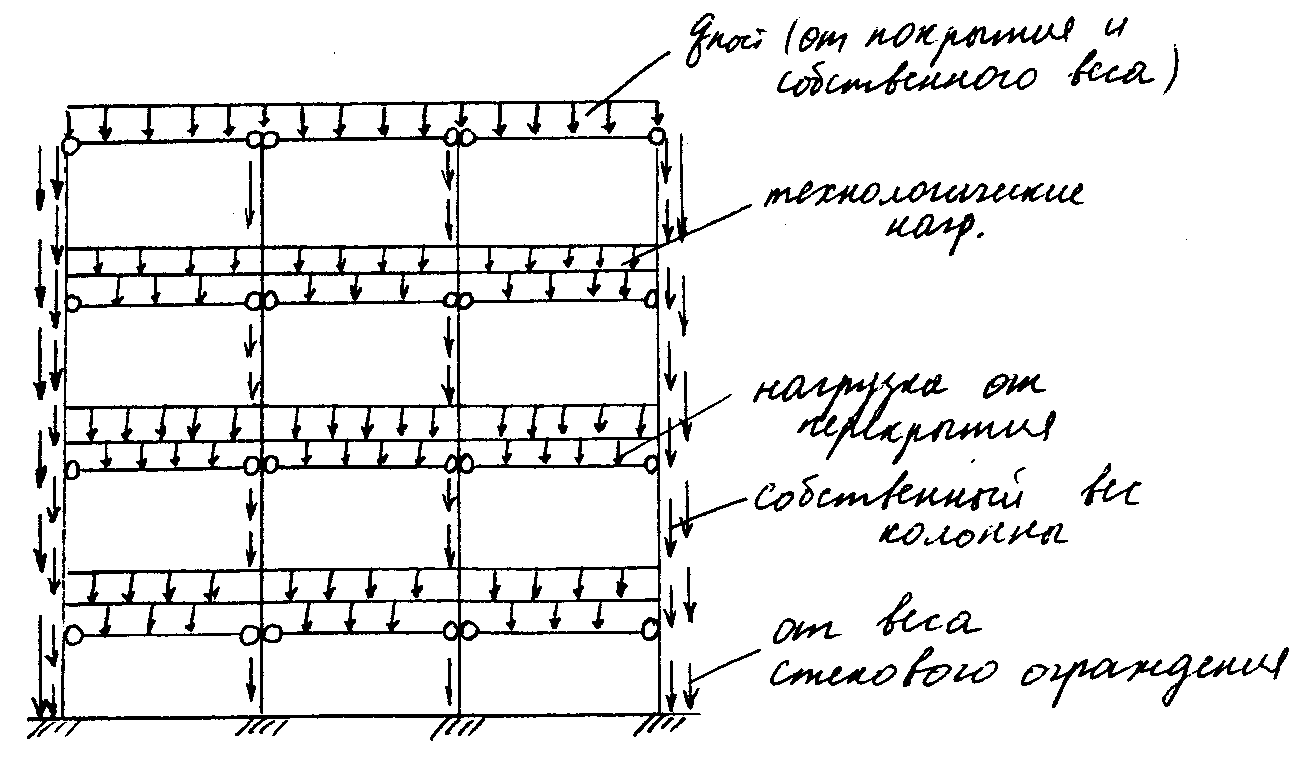 qпост (от покрытия и
собственного веса)
технологические
нагр.
нагрузка от
перекрытия
собственный вес
колонны
от веса
стенового ограждения